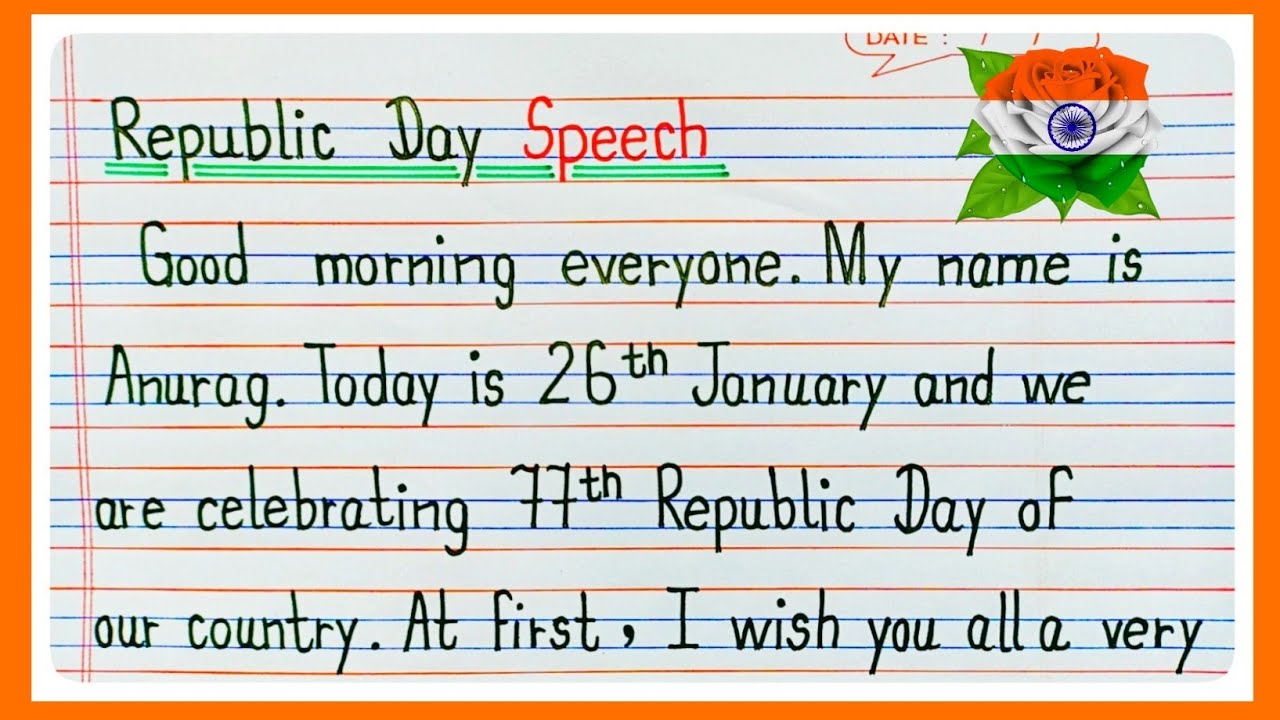 DATE : / /
Republic Day Speech
Good morning everyone. My name is
Anurag. Today is 26th January and we
are celebrating 77th Republic Day of
our country. At first, I wish you all a very